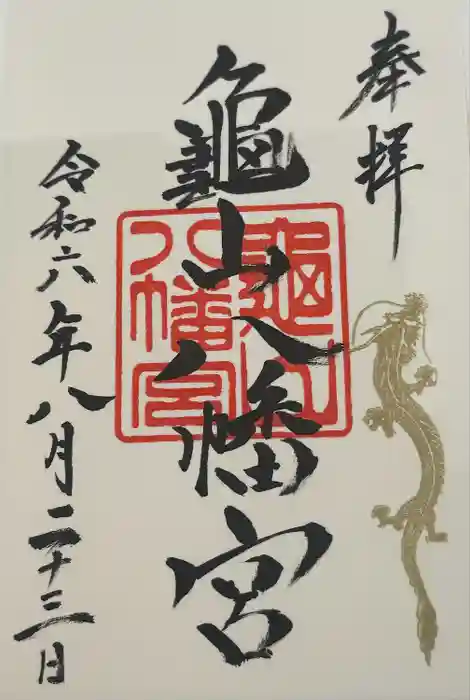 奉拝
龜山八幡宮
龜山
八幡宮
令和六年八月二十三日